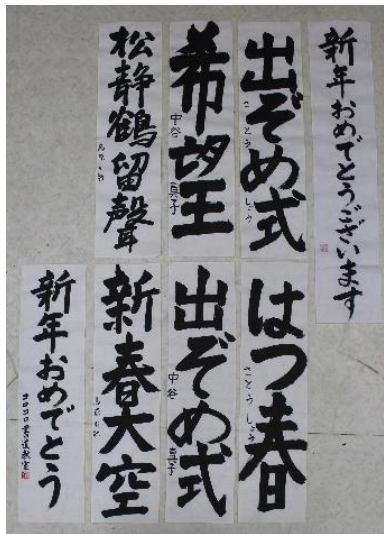 新年おめでとうございます
出ぞめ式
さとうしょう
希望王
中谷真子
松静鶴留聲
はつ春
さとうしょう
出ぞめ式
中谷真子
新春大空
新年おめでとう
コロコロ書道教室